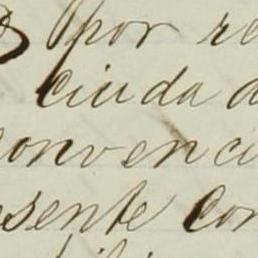 por re
ciuda d
convenci
sente con